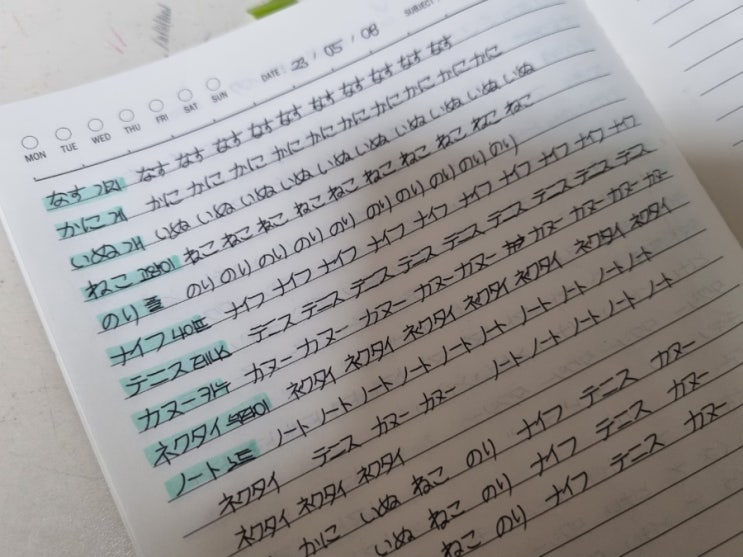 SUBJECT:
DATE: 23 / 05 / 08
MON TUE WED THU FRI SAT SUN
なす 가지 なす なす なす なす なす なす なす なす なす なす
かに 게 かに かに かに かに かに かに かに かに かに かに
いぬ 개 いぬ いぬ いぬ いぬ いぬ いぬ いぬ いぬ いぬ いぬ
ねこ 고양이 ねこ ねこ ねこ ねこ ねこ ねこ ねこ ねこ ねこ ねこ
のり 풀 のり のり のり のり のり のり のり のり のり のり
ナイフ 나이프 ナイフ ナイフ ナイフ ナイフ ナイフ ナイフ ナイフ ナイフ ナイフ
テニス 테니스 テニス テニス テニス テニス テニス テニス テニス テニス テニス
カヌー 카누 カヌー カヌー カヌー カヌー カヌー カヌー カヌー カヌー
ネクタイ 넥타이 ネクタイ ネクタイ ネクタイ ネクタイ ネクタイ ネクタイ ネクタイ
ノート 노트 ノート ノート ノート ノート ノート ノート ノート ノート ノート
ネクタイ テニス カヌー カヌー ノート ノート ノート ノート ノート
ネクタイ ネクタイ ネクタイ
かに いぬ ねこ のり ナイフ テニス カヌー
いぬ ねこ のり ナイフ テニス カヌー
ねこ のり ナイフ テニス カヌー